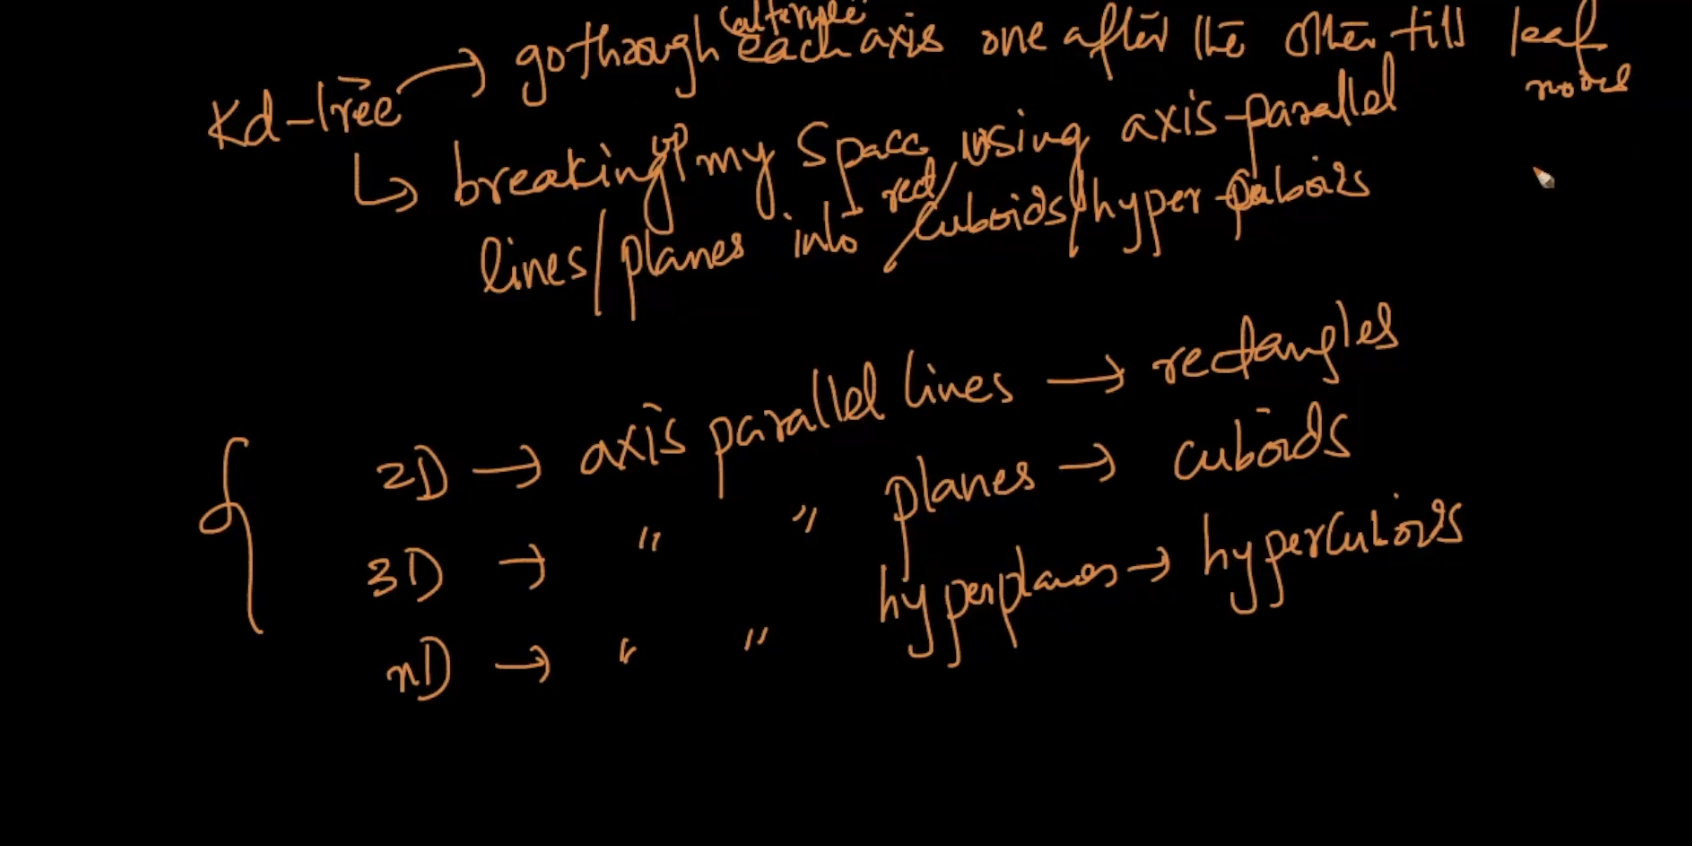 (alternate
Kd-tree → go through each axis one after the other till leaf nodes
↳ breaking up my space using axis-parallel
lines/planes into rect/cuboids/hyper-cuboids
2D → axis parallel lines → rectangles
3D → " " planes → cuboids
nD → " " hyperplanes → hypercuboids